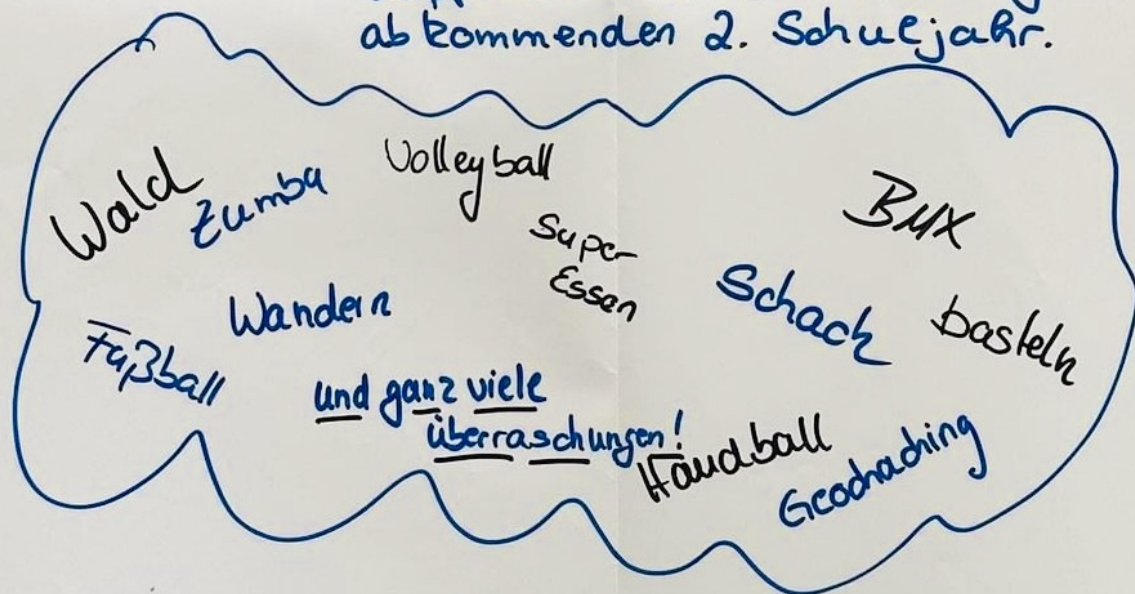 ab kommenden 2. Schuljahr.
Wald
Zumba
Volleyball
Super
Essen
BMX
Schach
basteln
Wandern
Fußball
und ganz viele
überraschungen!
Handball
Geochaching